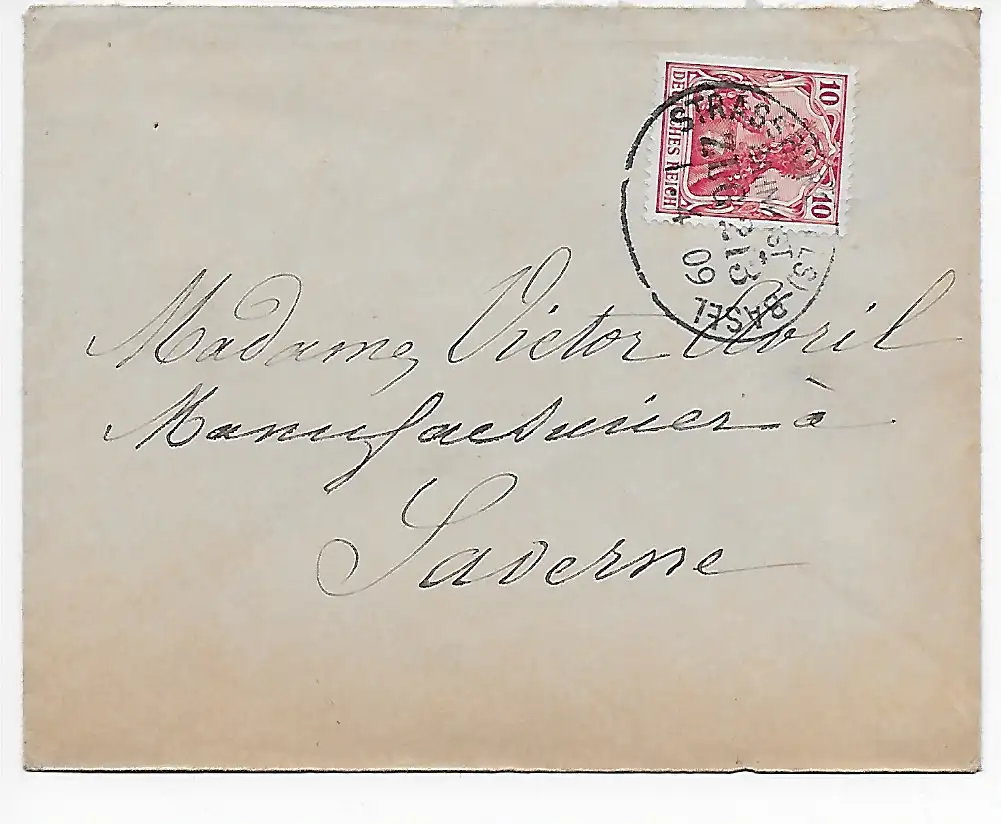 10 DEUTSCHES REICH 10
STRASSBURG (ELS) BASEL
BAHNPOST
ZUG 213
4 09
Madame Victor Avril
Manufacturier à
Saverne